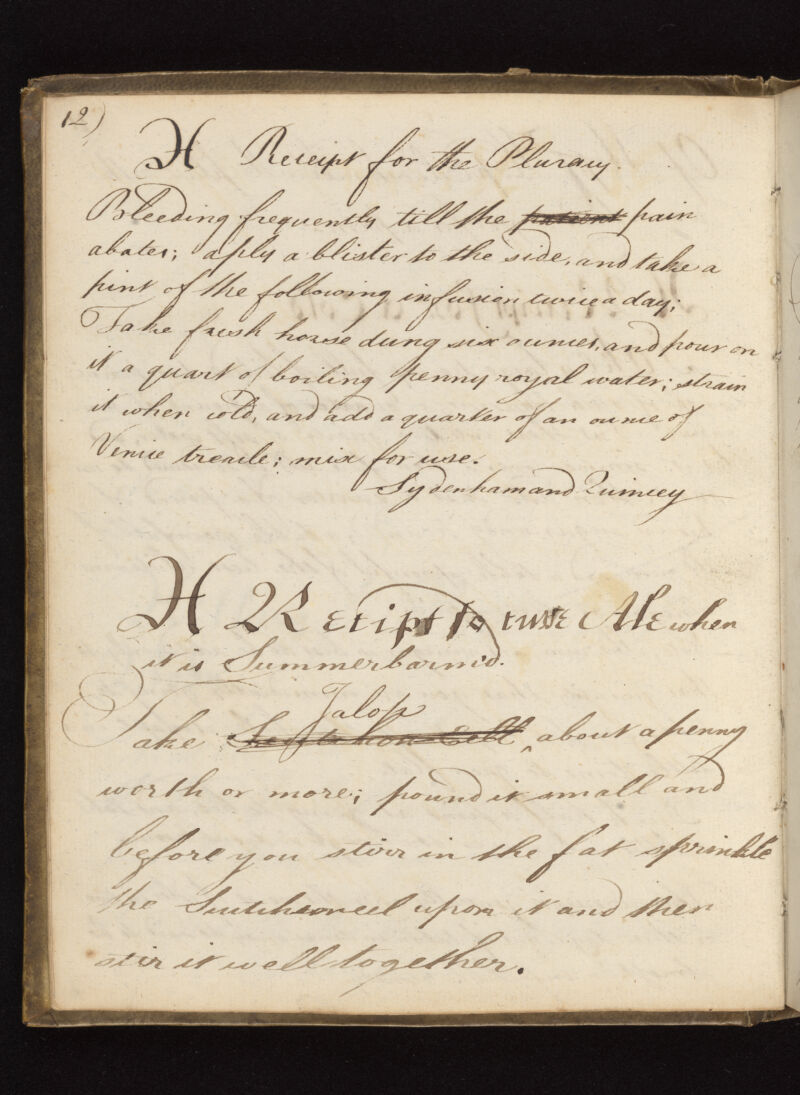 12)
A Receipt for the Pluracy.
Bleeding frequently till the patient pain
abates; aply a blister to the side, and take a
pint of the following infusion twice a day;
Take fresh horse dung six ounces, and pour on
it a quart of boiling penny royal water; strain
it when cold, and add a quarter of an ounce of
Venice treacle; mix for use.
Sydenham and Quincey
A Receipt to cure Ale when
it is Summerbarm'd.
Jalop
Take ^ about a penny
worth or more; pound it small and
before you stirr in the fat sprinkle
the Sutchoneel upon it and then
stir it well together.